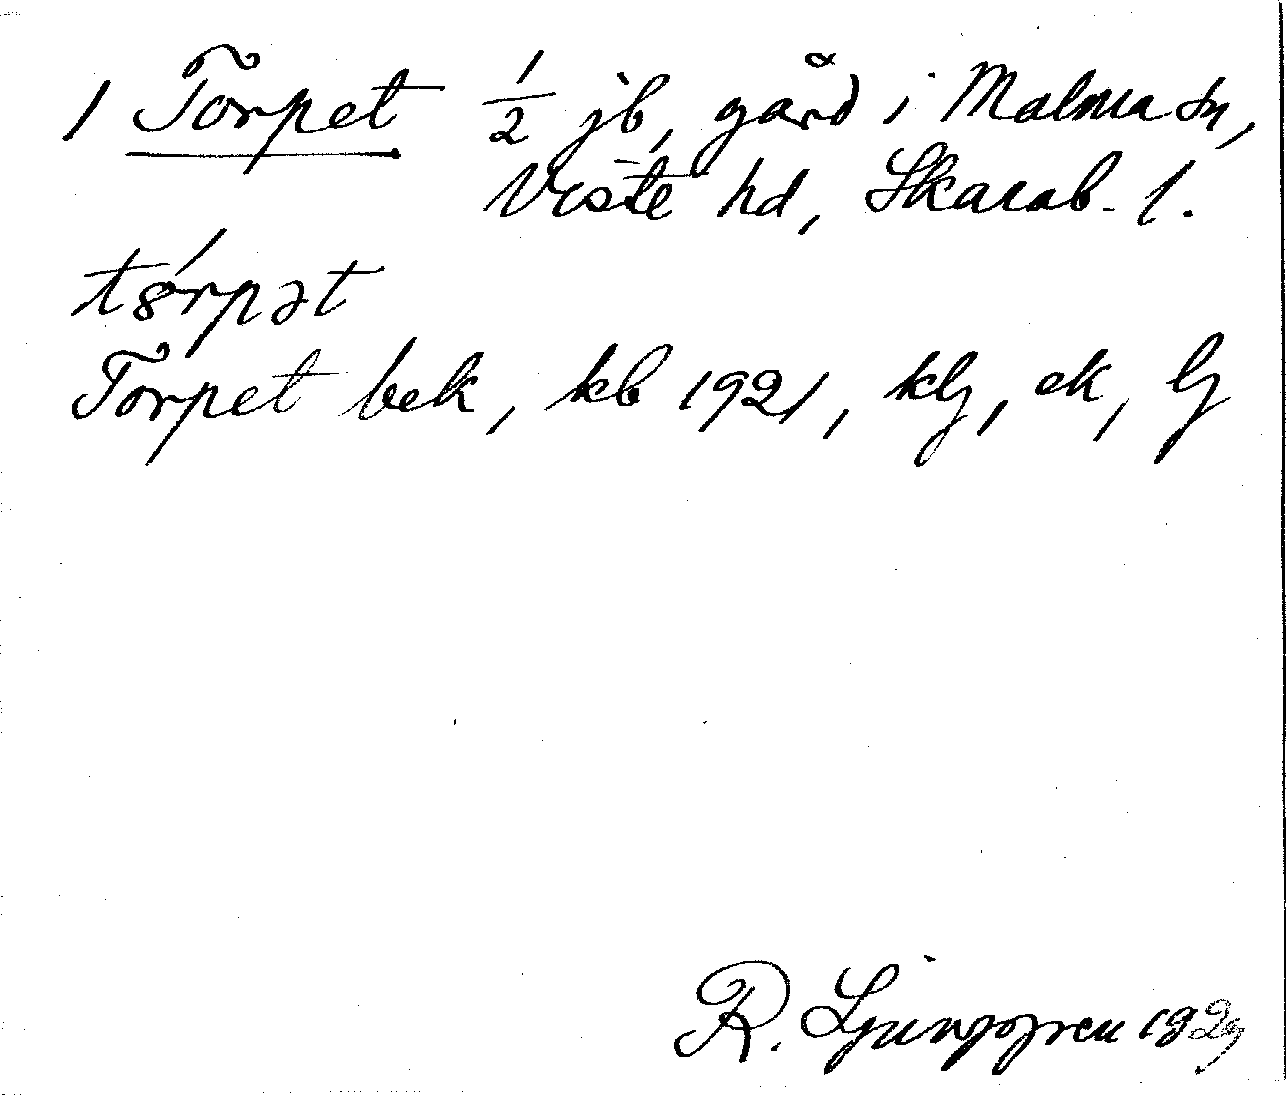 1 Torpet 1/2 jb, gård i Malma sn,
Viste hd, Skarab. l.
tórpət
Torpet bek, kb 1921, klj, ek, lj
R. Ljunggren 1929